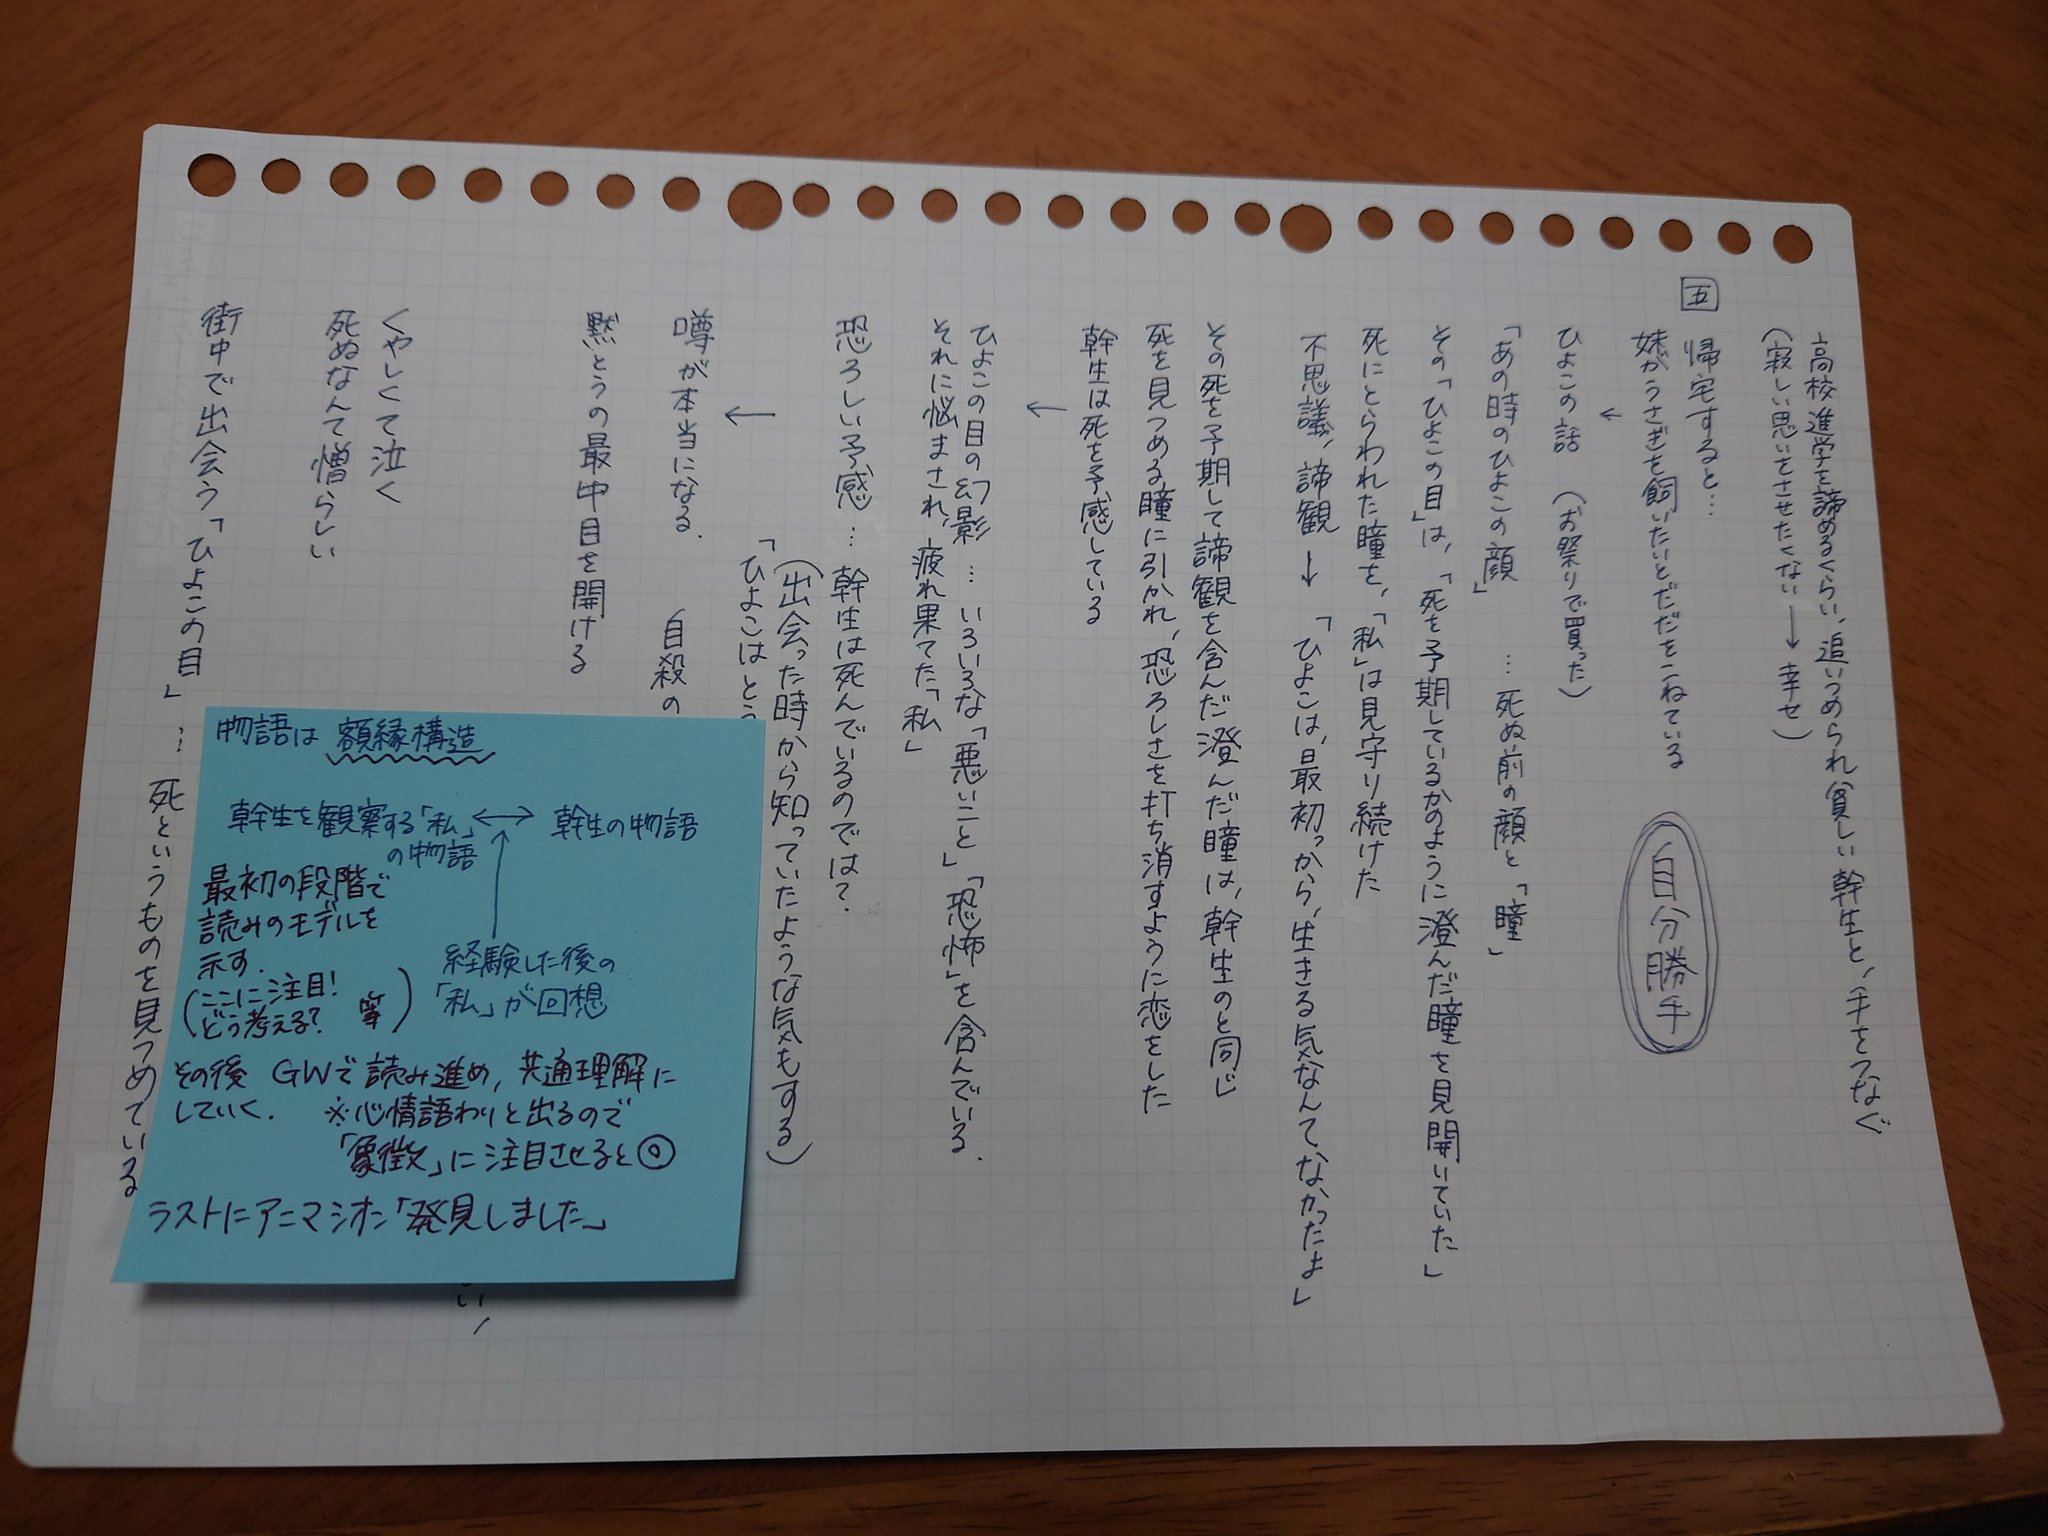 高校進学を諦めるくらい、追いつめられ貧しい幹生と、手をつなぐ
(寂しい思いをさせたくない→幸せ)
五
帰宅すると…
妹がうさぎを飼いたいとだだをこねている
自分勝手
↓
ひよこの話 (お祭りで買った)
「あの時のひよこの顔」…死ぬ前の顔と「瞳」
その「ひよこの目」は、「死を予期しているかのように澄んだ瞳を見開いていた」
死にとらわれた瞳を、「私」は見守り続けた
不思議、諦観→「ひよこは、最初っから、生きる気なんて、なかったよ」
その死を予期して諦観を含んだ澄んだ瞳は、幹生のと同じ
死を見つめる瞳に引かれ、恐ろしさを打ち消すように恋をした
幹生は死を予感している
←
ひよこの目の幻影…いろいろな「悪いこと」「恐怖」を含んでいる.
それに悩まされ、疲れ果てた「私」
恐ろしい予感…幹生は死んでいるのでは?
(出会った時から知っていたような気もする)
「ひよこはとう
←
噂が本当になる. 自殺の
黙とうの最中目を開ける
くやしくて泣く
死ぬなんて憎らしい
街中で出会う「ひよこの目」…死というものを見つめている
物語は 額縁構造
幹生を観察する「私」の物語 ↔ 幹生の物語
経験した後の
「私」が回想
最初の段階で
読みのモデルを
示す.
(ここに注目!
どう考える? 等)
その後 GWで読み進め, 共通理解に
していく. ※心情語わりと出るので
「象徴」に注目させると◎
ラストにアニマシオン「発見しました」